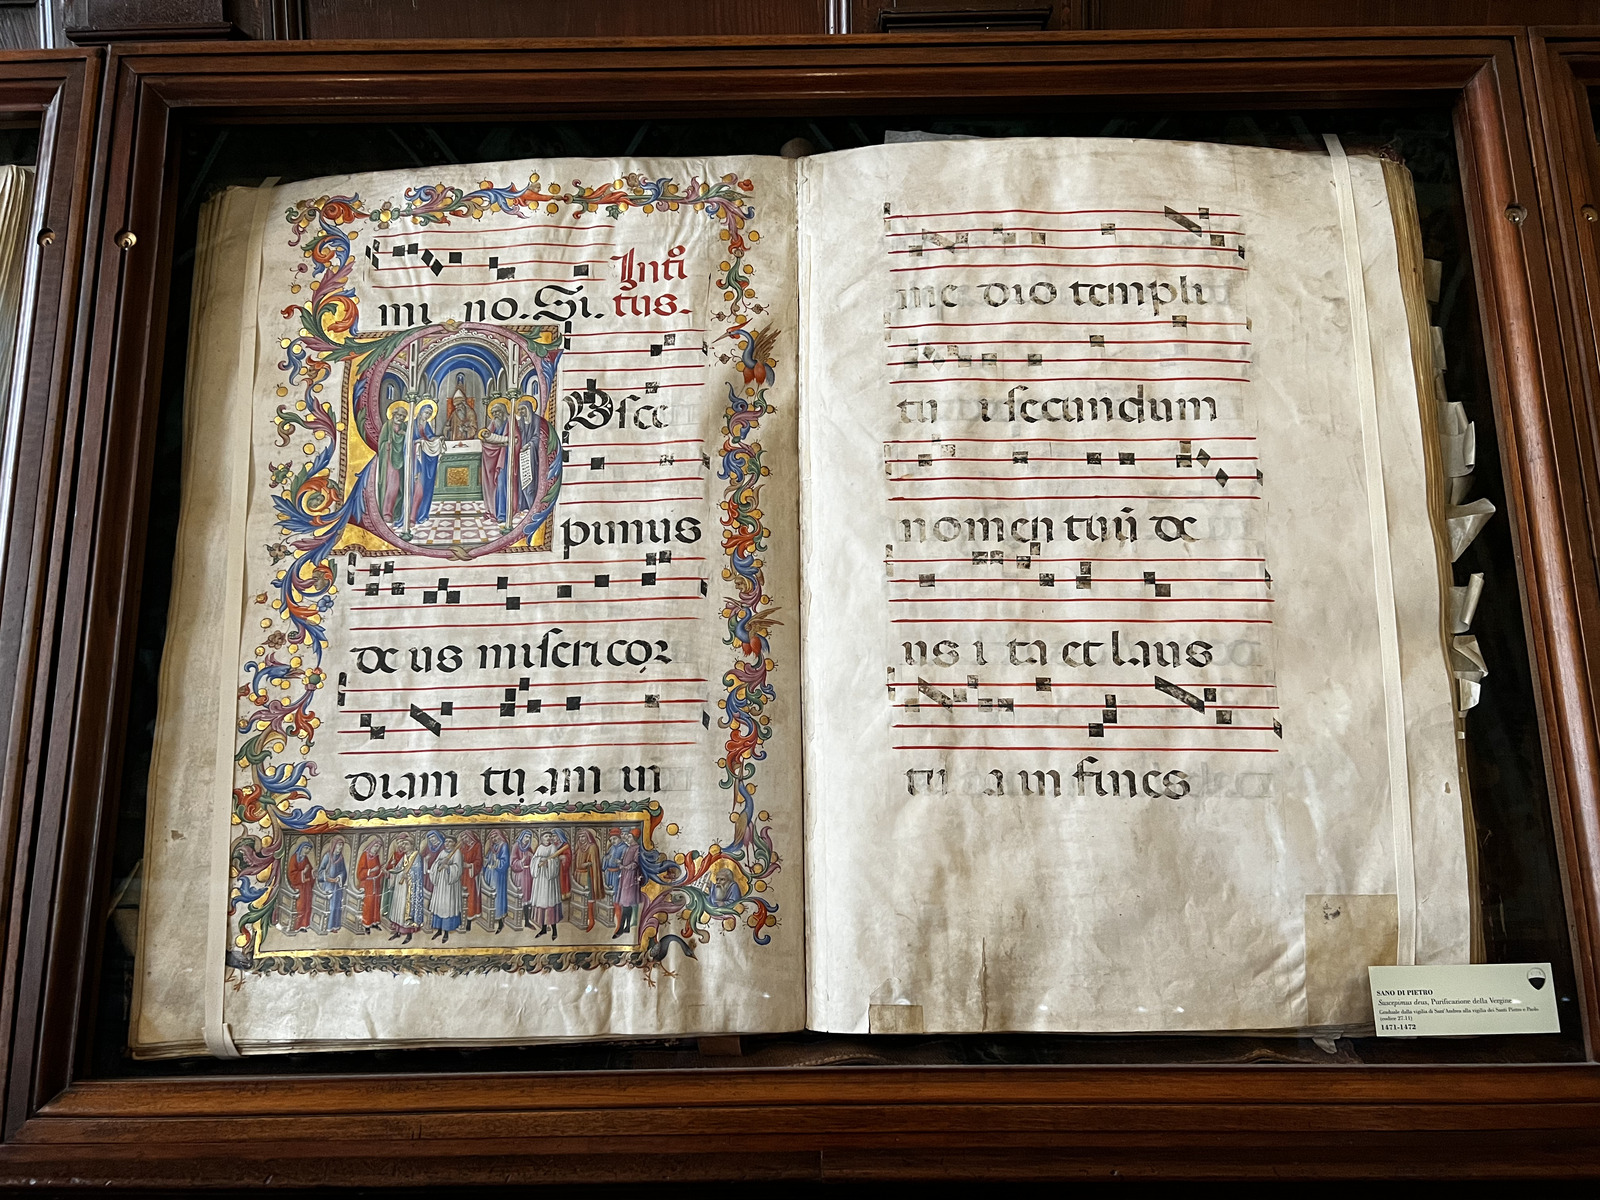 mi no. Si. Intō
tus.
Usce
pimus
de us misericor
diam tu am in
me dio templi
tu i secundum
nomen tuū de
us i ta et laus
tu a in fines
SANO DI PIETRO
Suscepimus deus, Purificazione della Vergine
Graduale dalla vigilia di Sant'Andrea alla vigilia dei Santi Pietro e Paolo
(codice 27.11)
1471-1472